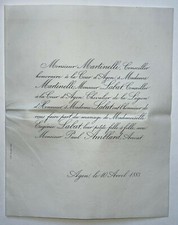 Monsieur Martinelli, Conseiller
honoraire à la Cour d'Agen & Madame
Martinelli, Monsieur Labat Conseiller
à la Cour d'Agen Chevalier de la Légion
d'Honneur & Madame Labat ont l'honneur de
vous faire part du mariage de Mademoiselle
Eugénie Labat leur petite fille & fille avec
Monsieur Paul Amblard, Avocat
Agen, le 10 Avril